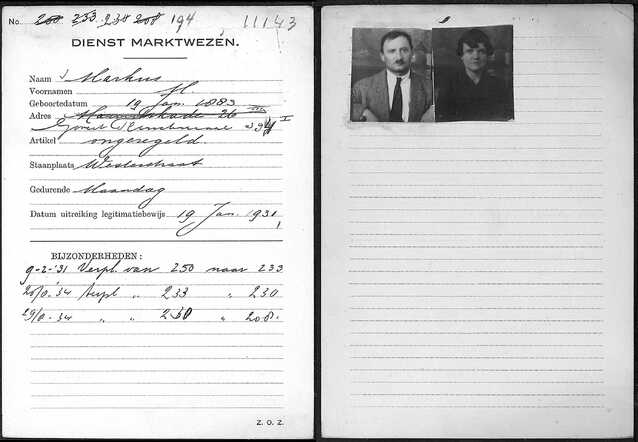 No. 250 233 230 208 194 11143
DIENST MARKTWEZEN.
Naam Markus
Voornamen M
Geboortedatum 19 Jan. 1883
Adres 26 III
Govert Flinckstraat I
Artikel ongeregeld
Staanplaats Westerstraat
Gedurende Maandag
Datum uitreiking legitimatiebewijs 19 Jan. 1931
BIJZONDERHEDEN:
9-2-'31 Verpl. van 250 naar 233
'34 verpl " 233 " 230
'34 " 230 " 208.
Z. O. Z.